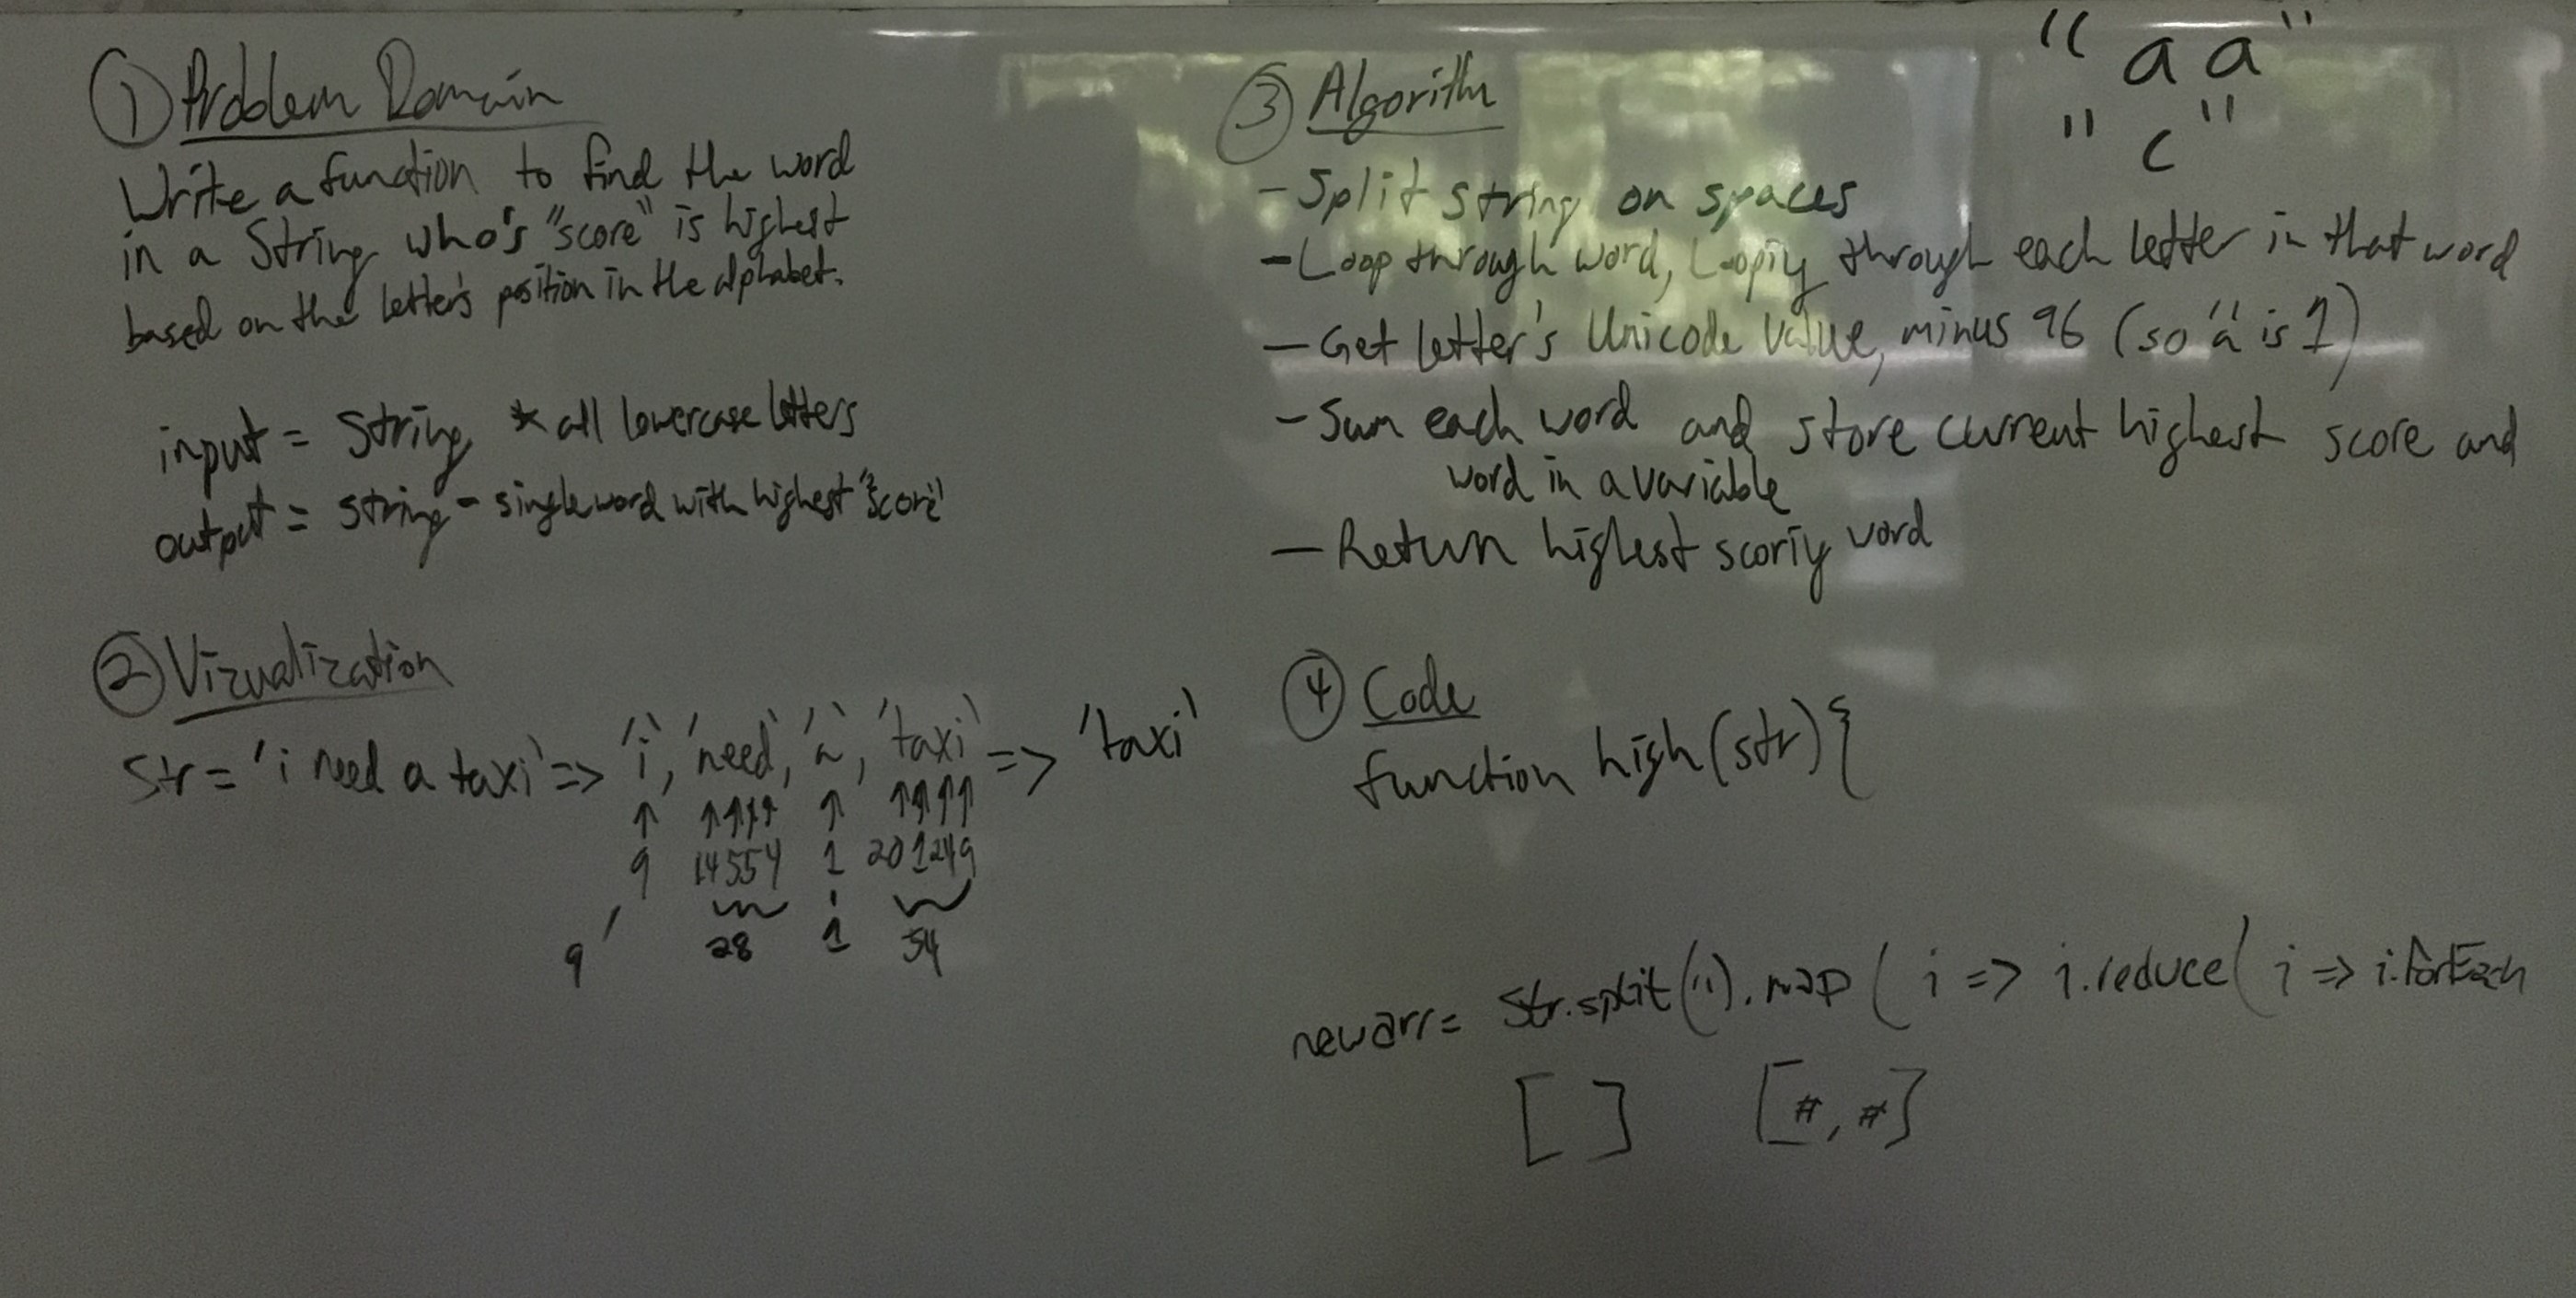 ① Problem Domain
Write a function to find the word
in a String who's "score" is highest
based on the letter's position in the alphabet.
input = String * all lowercase letters
output = string - single word with highest "score"
② Vizualization
Str = 'i need a taxi' => 'i', 'need', 'a', 'taxi' => 'taxi'
↑ ↑↑↑↑ ↑ ↑↑↑↑
9 14 5 5 4 1 20 1 24 9
9 28 1 54
③ Algorithm
- Split string on spaces
- Loop through word, Looping through each letter in that word
- Get letter's Unicode Value, minus 96 (so 'a' is 1)
- Sum each word and store current highest score and
word in a variable
- Return highest scoring word
"a a"
"c"
④ Code
function high(str){
newarr = Str.split(' ').map( i => i.reduce( i => i.forEach
[ ] [#, #]